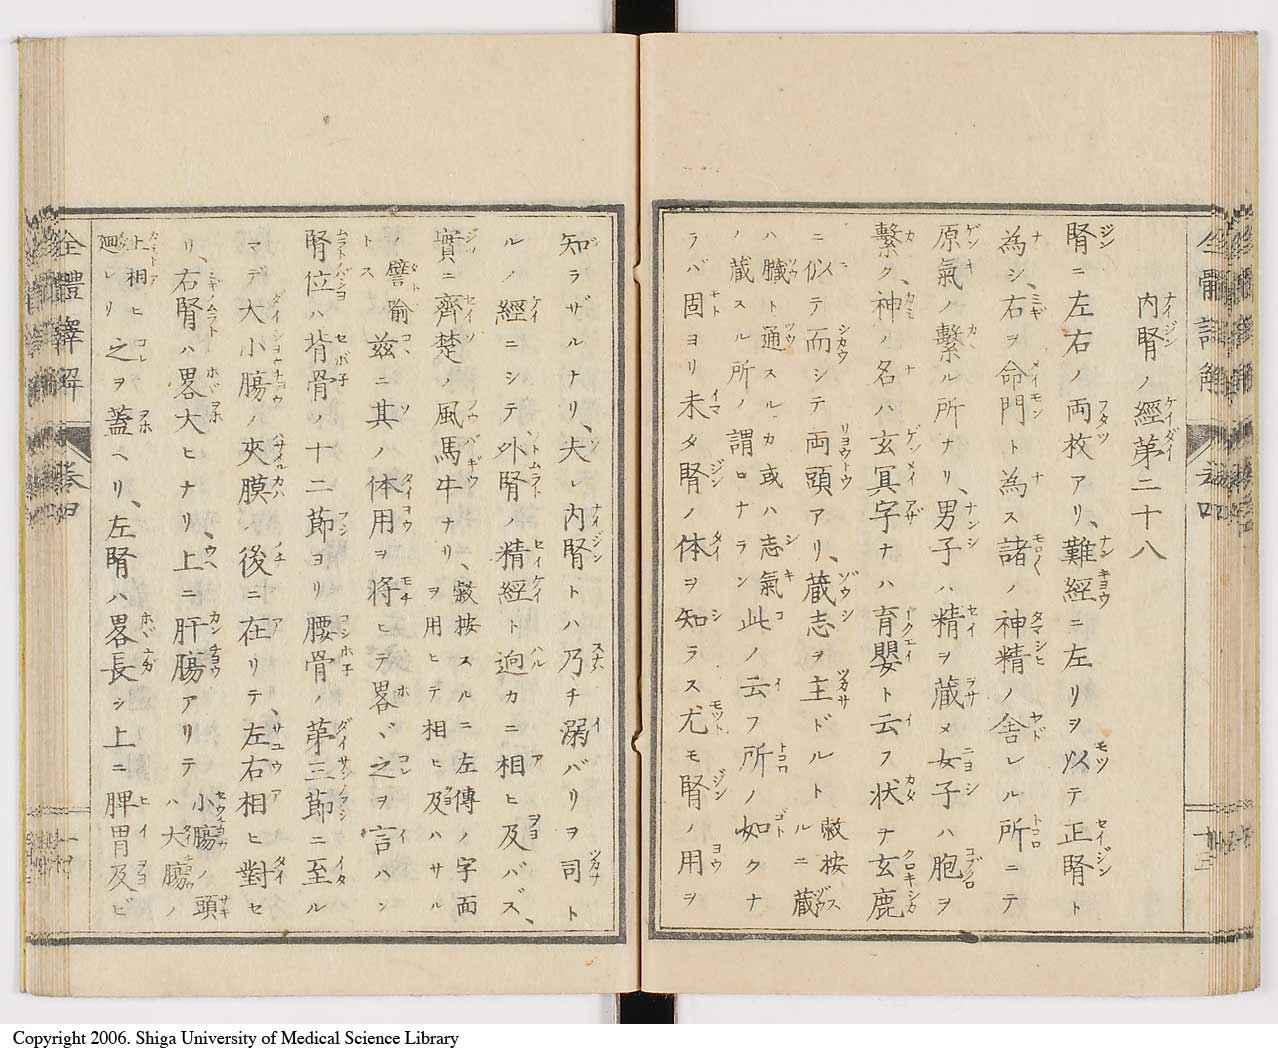 内腎ノ經第二十八
腎ニ左右ノ両枚アリ、難經ニ左リヲ以テ正腎ト
為シ、右ヲ命門ト為ス諸ノ神精ノ舎レル所ニテ
原氣ノ繫ル所ナリ、男子ハ精ヲ蔵メ女子ハ胞ヲ
繫ク、神ノ名ハ玄冥字ナハ育嬰ト云フ状チ玄鹿
ニ似テ而シテ両頭アリ、蔵志ヲ主ドルト 敝按スルニ蔵
ハ臓ト通スルカ或ハ志氣
ノ蔵スル所ノ謂ロナラン 此ノ云フ所ノ如クナ
ラバ固ヨリ未タ腎ノ体ヲ知ラス尤モ腎ノ用ヲ
知ラザルナリ、夫レ内腎トハ乃チ溺バリヲ司ト
ルノ經ニシテ外腎ノ精經ト逈カニ相ヒ及バズ、
實ニ齊楚ノ風馬牛ナリ、敝按スルニ左傳ノ字面
ヲ用ヒテ相ヒ及ハサル
ノ譬喩
トス 茲ニ其ノ体用ヲ将ヒテ畧ヾ之ヲ言ハン
腎位ハ背骨ノ十二節ヨリ腰骨ノ第三節ニ至ル
マデ大小腸ノ夾膜ノ後ニ在リテ、左右相ヒ對セ
リ、右腎ハ畧大ヒナリ上ニ肝腸アリテ 小腸ノ頭
ハ大腸ノ
上相ヒ
廻レリ 之ヲ蓋ヘリ、左腎ハ畧長シ上ニ脾胃及ビ
全體詳解
巻四
十三
全體詳解
巻四